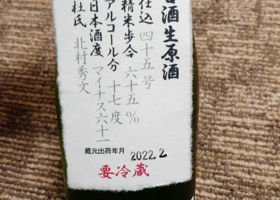 酒生原酒
仕込 四十五号
精米歩合 六十五%
アルコール分 十七度
日本酒度 マイナス六十一
杜氏 北村秀文
蔵元出荷年月 2022.2
要冷蔵